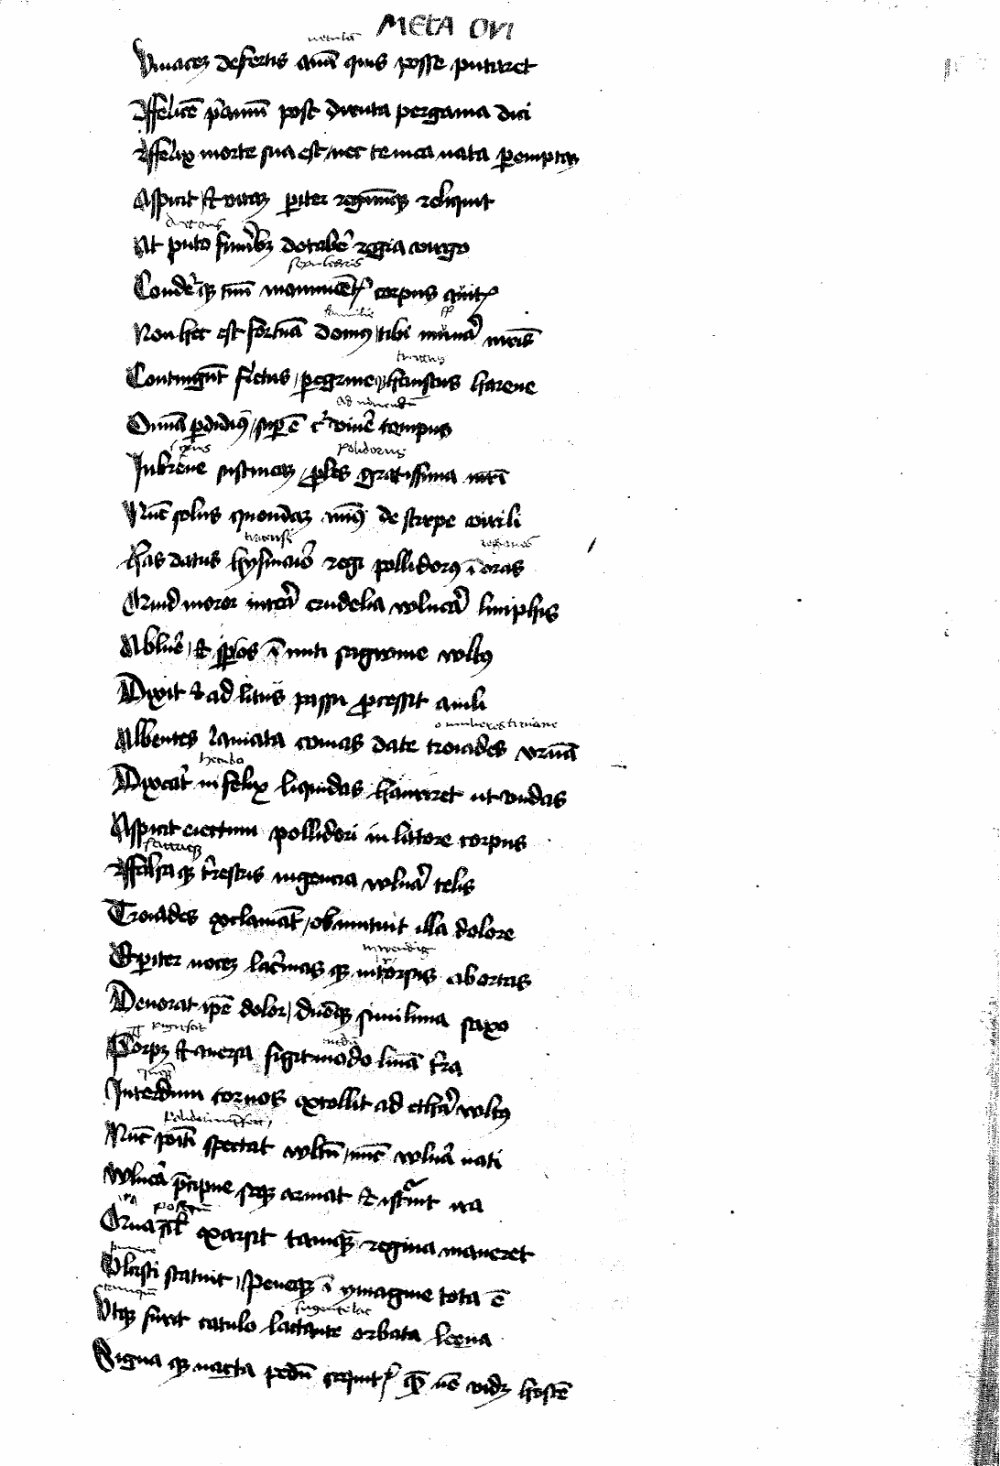 META OVI
vetulā
Vivacem defertis anū quis posse putaret
Felicē p̄amū post diruta pergama dici
Felix morte sua est / nec te mea nata peremptam
Aspicit / et vitam pariter regnūq; reliquit
At puto funerib; dotaberis regia virgo
sepulcris
Condet̄q; tuū monumētis corpus avitis
familie
Non hec est fortuna domus / tibi munera matris
Contingunt fletus / peregrineq; haustus harene
ad vivendū
Omnia perdidimus / superest cur vivere tempus
polidorus
In breve sustineam / proles gratissima matri
Nūc solus quondam minimus de stirpe virili
regiones
Has datus hysmario regi pollidorus ī oras
Quid moror interea crudelia vulnera limphis
Abluere / et sparsos īmiti sanguine vultus
Dixit et ad litus passu processit anili
o mulieres troiane
Albentes laniata comas date troiades urnā
hecuba
Dixerat infelix liquidas hauriret ut undas
Aspicit eiectum pollidori in littore corpus
Factaq; threiciis ingencia vulnera telis
Troiades exclamāt / obmutuit illa dolore
Et pariter vocem lacrimas q; introrsus abortas
Devorat ipse dolor / duroq; simillima saxo
Torpet et aversa figit modo lumina terra
Interdum torvos extollit ad ethera vultus
Nūc positi spectat vultū / nūc vulnera nati
Vulnera precipue seq; armat et instruit ira
Qua simul exarsit tamq; regina maneret
Ulcisci statuit / peneq; ī ymagine tota ē
Utq; furit catulo lactante orbata leena
Signa q; nacta pedū sequitur q̄ nō videt hostē